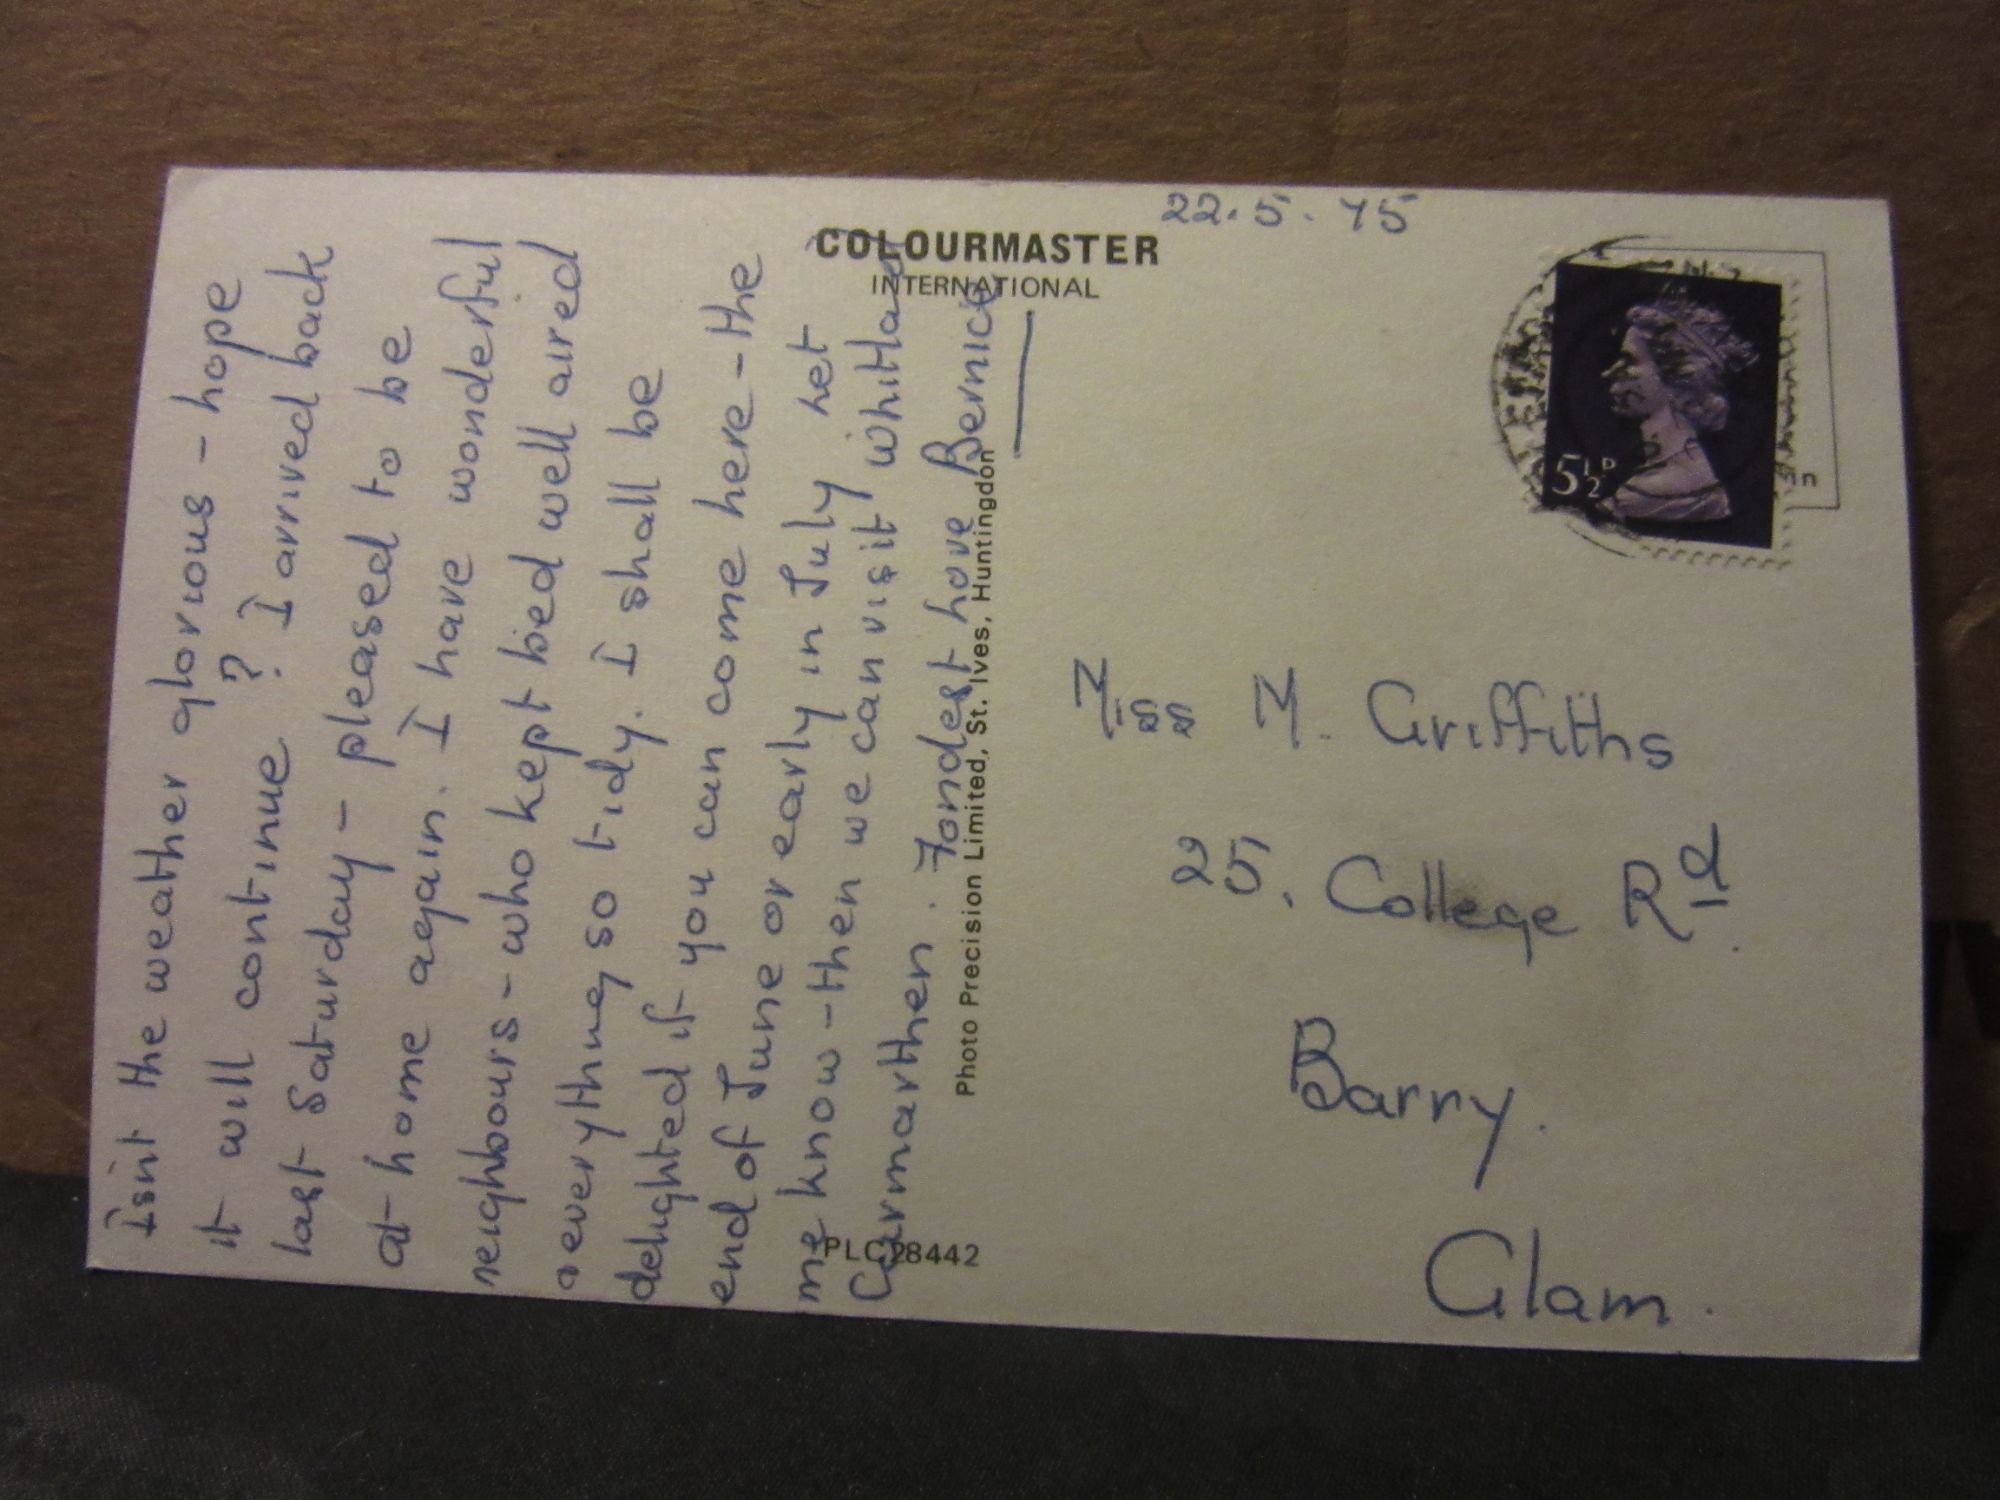 Isint the weather glorious - hope
it will continue ? I arrived back
last Saturday - pleased to be
at home again. I have wonderful
neighbours - who kept bed well aired
& everything so tidy. I shall be
delighted if you can come here - the
end of June or early in July Let
me know - then we can visit Whitland
Carmarthen. Fondest Love Bernice
COLOURMASTER
INTERNATIONAL
Photo Precision Limited, St. Ives, Huntingdon
PLC28442
22.5.75
5½P
Miss M. Griffiths
25, College Rd.
Barry.
Glam.